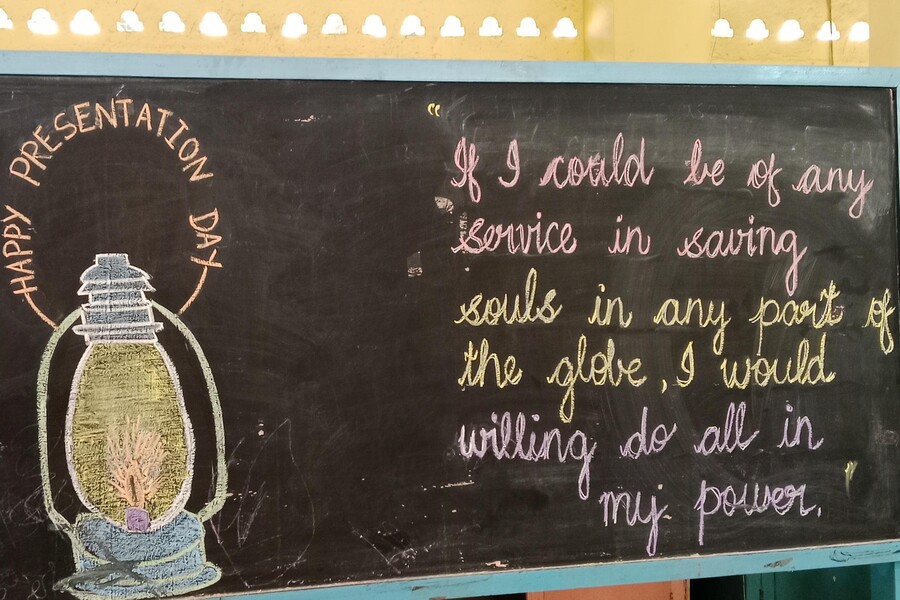 HAPPY PRESENTATION DAY
“
If I could be of any
service in saving
souls in any part of
the globe, I would
willing do all in
my power.”